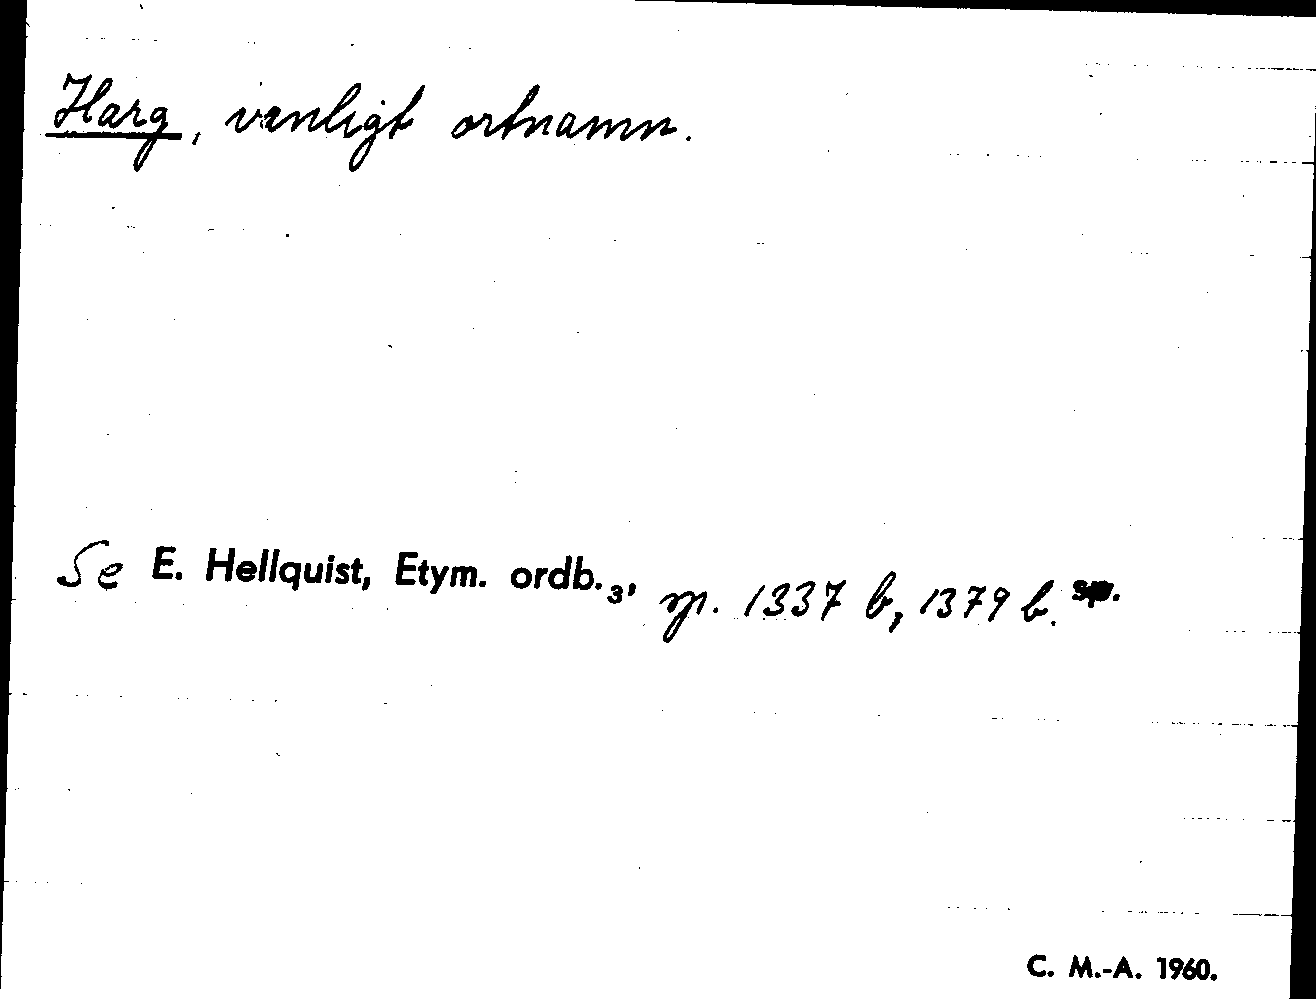 Harg, vanligt ortnamn.
Se E. Hellquist, Etym. ordb.₃, p. 1337 b, 1379 b. sp.
C. M.-A. 1960.